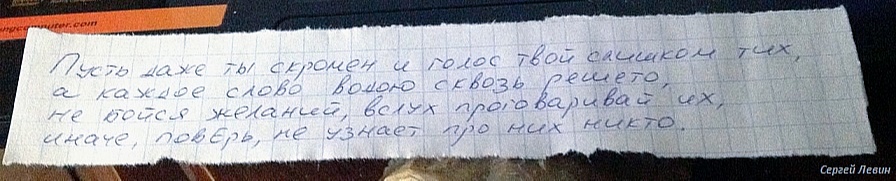 ngcomputer.com
Пусть даже ты скромен и голос твой слишком тих,
а каждое слово водою сквозь решето,
не бойся желаний, вслух проговаривай их,
иначе, поверь, не узнает про них никто.
Сергей Левин